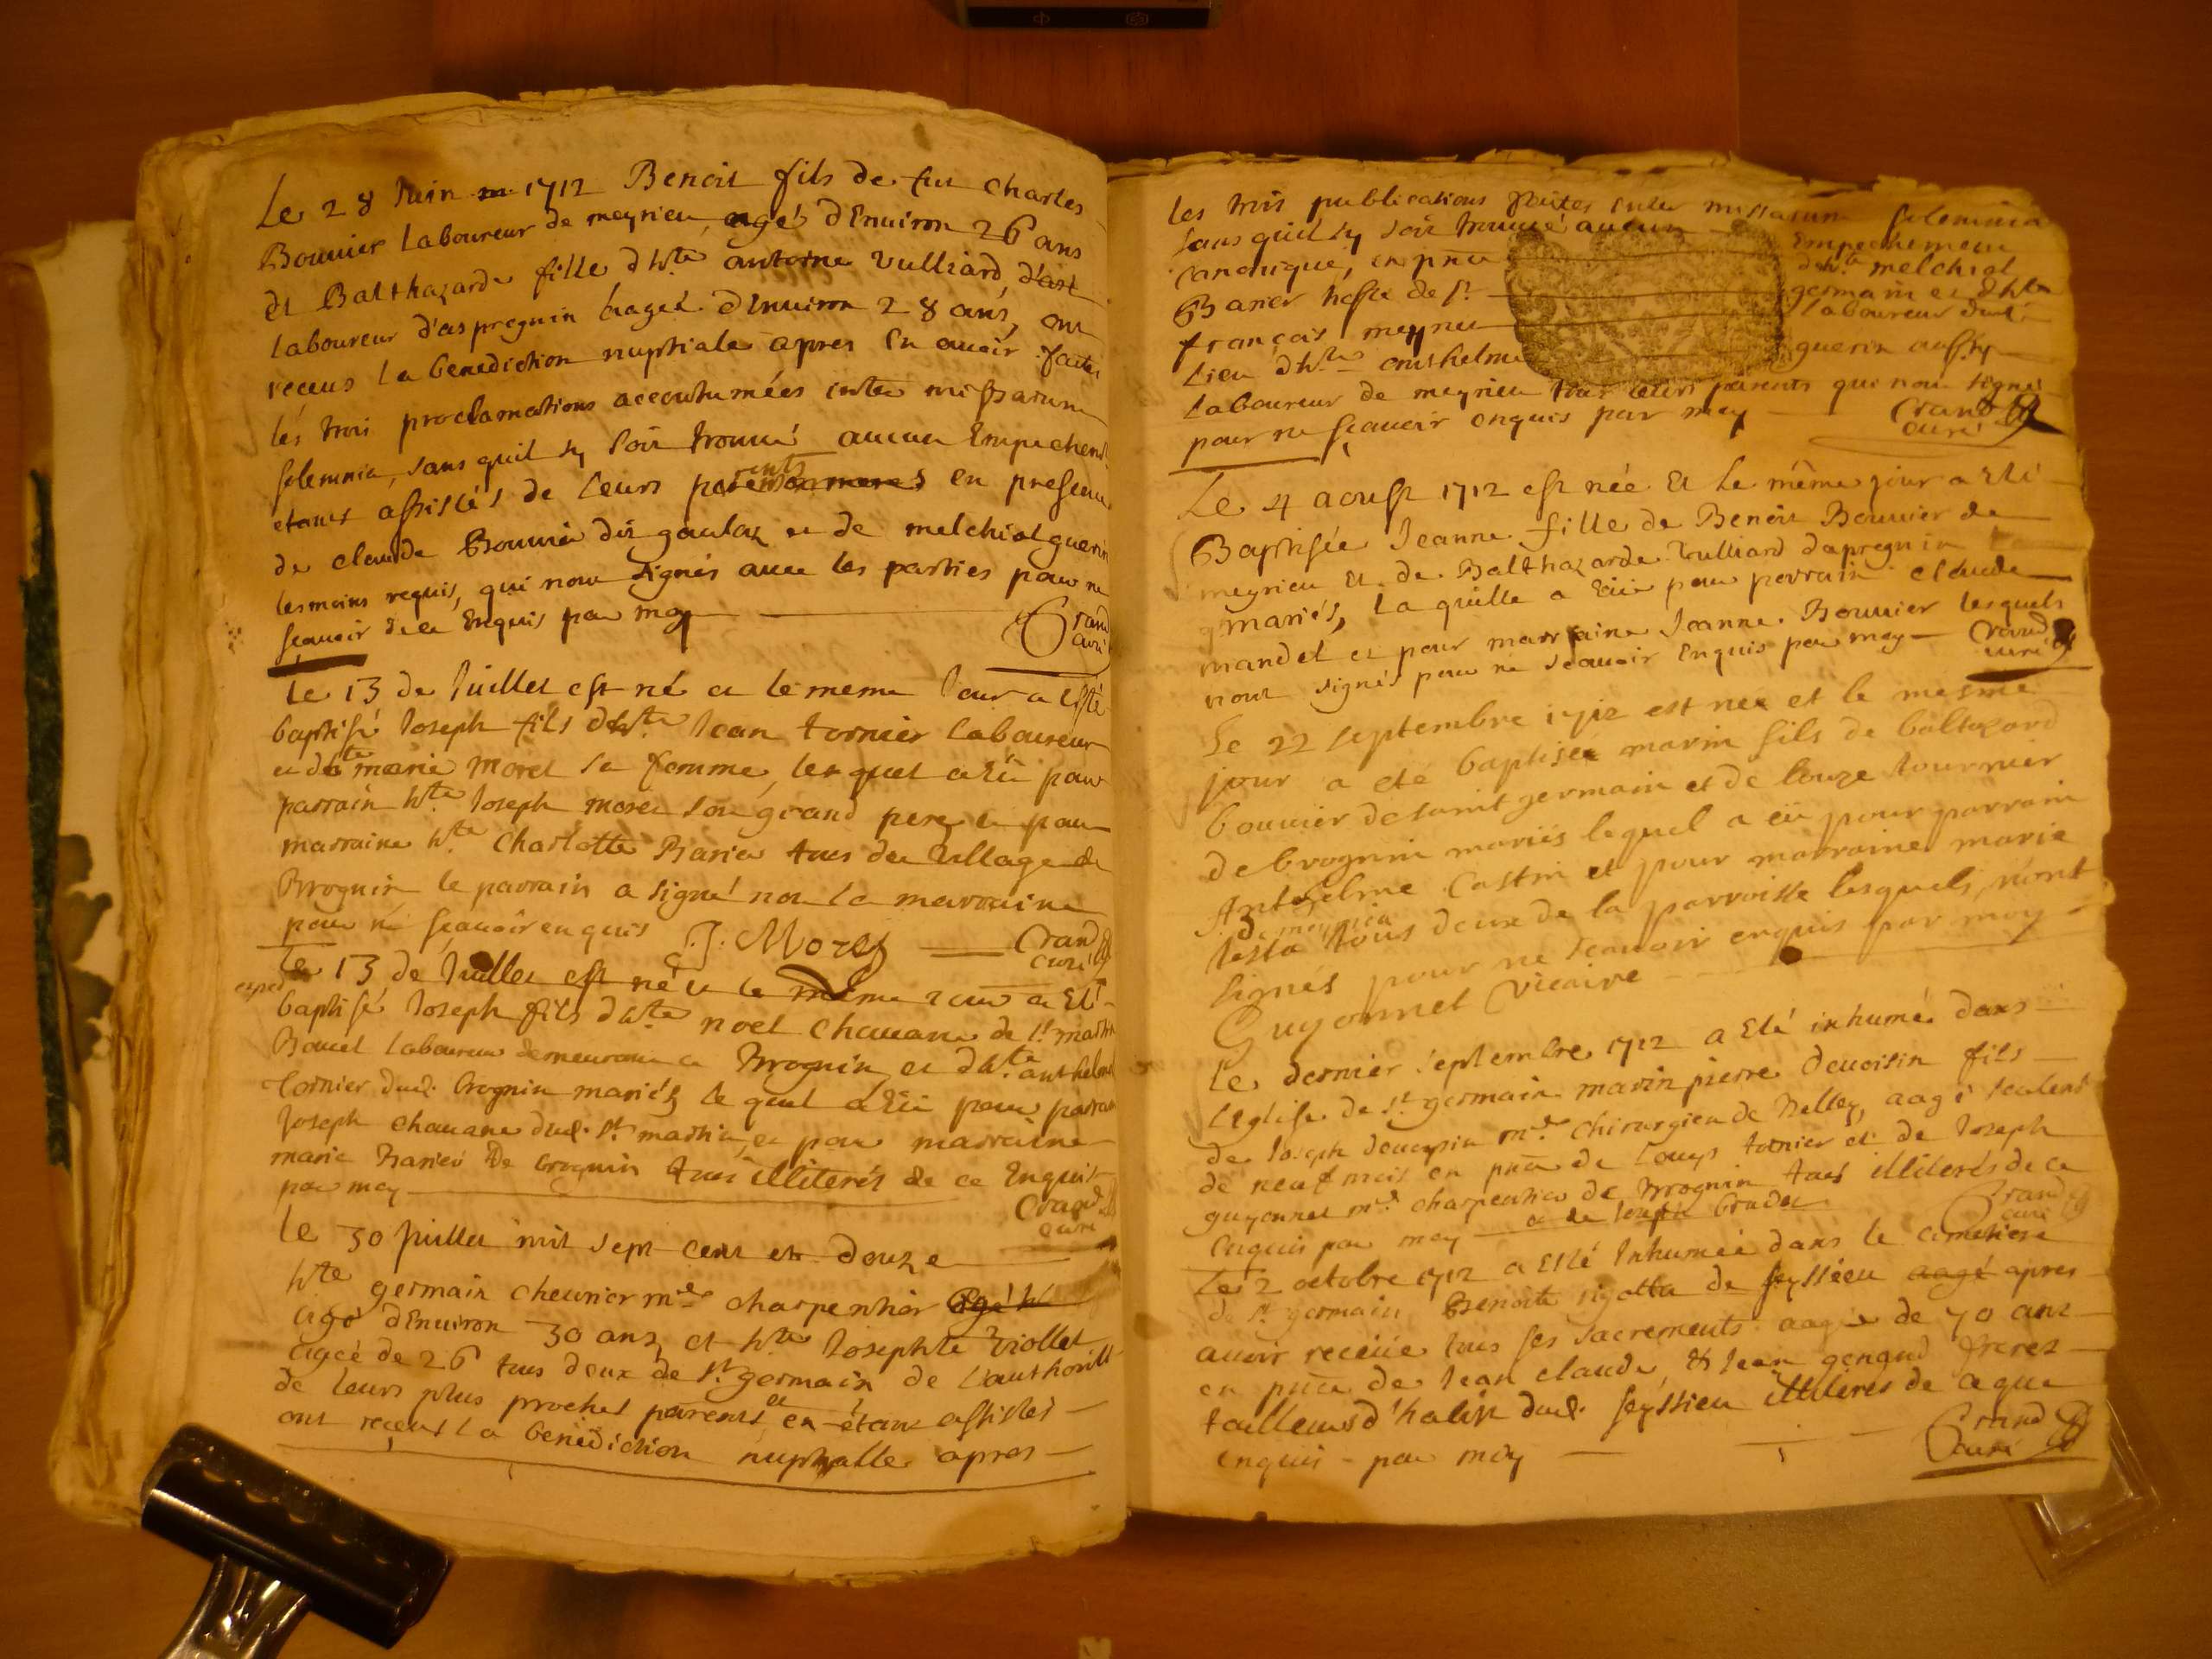 Le 28 Juin 1712 Benoit fils de feu charles
Bouuier Laboureur de meyrieu, agé d'Enuiron 26 ans
Et Balthazarde fille d'hte antoine Vulliard, d'ast
laboureur d'aspregnin hagée d'Enuiron 28 ans, ont
receus la benediction nuptiale apres En auoir faites
les trois proclamations accoutumées inter missarum
solemnia, sans quil sy soit trouué aucun Empechemt
etants assistés de leurs parents en presence
de claude Bouuier dit gaulaz et de melchiol guerin
tesmoins requis, qui n'ont signés auec les parties pour ne
sçauoir de ce Enquis par moy
Crand
curé
Le 13 de Juillet est né et le meme Jour a esté
baptisé Joseph fils d'hte Jean tornier laboureur
et d'hte marie morel sa femme, lesquel a Eü pour
parrain hte Joseph morel son grand pere, et pour
marraine hte Charlotte Barier tous du Village de
Brognin le parrain a signé non la marraine
pour ne sçauoir enquis J. Morel Crand
curé
exped
Le 13 de Juillet est né et le meme iour a Eté
baptisé Joseph fils d'hte noel Chauane de St martin
Bauel laboureur demeurant a Brognin et d'hte anthelme
tornier dud. brognin mariés, le quel a Eü pour parrain
Joseph chauane dud. St martin, et pour marraine
marie Barier de brognin tous illiterés de ce Enquis
par moy
Crand
curé
Le 30 Juillet mil sept cent et douze
hte germain cheurier mre charpentier
agé d'Enuiron 30 ans, et hte Josephte Viollet
agée de 26 tous deux de St germain de l'authorité
de leurs plus proches parents et en étant assistés
ont receus la benediction nuptialle apres
les trois publications faites inter missarum solemnia
sans quil sy soit trouué aucun Empechement
canonique, en pnce d'hte melchiol
Barier hoste de St germain et d'hte
françois meyrieu laboureur dud.
lieu d'hte anthelme guerin aussy
laboureur de meyrieu tous leurs parents qui n'ont signé
pour ne sçauoir enquis par moy Crand
curé
Le 4 aoust 1712 est née Et le même jour a Eté
Baptisée Jeanne fille de Benoit Bouuier de
meyrieu Et de Balthazarde Vulliard d'apregnin
mariés, la quelle a Eüe pour parrain claude
mandel et pour marraine Jeanne Bouuier lesquels
n'ont signés pour ne sçauoir Enquis par moy Crand
curé
Le 22 septembre 1712 est née et le mesme
jour a eté baptisée marin fils de baltazard
bouuier de saint germain et de louize tournier
de brognin mariés lequel a eü pour parrain
Anthelme Castin et pour marraine marie
de meyrieu
testa tous deux de la parroisse lesquels n'ont
signés pour ne sçauoir enquis par moy
Guyonnet Vicaire
Le dernier septembre 1712 a Eté inhumé dans
l'Eglise de St germain marin pierre deuoisin fils
de Joseph deuoysin mre chirurgien de Belley, aagé seulemt
de neuf mois en pnce de Louys tornier et de Joseph
guyonnet mre charpentier de Brognin tous illiterés de ce
Enquis par moy et de Joseph brudet Crand
curé
Le 2 octobre 1712 a Eté Inhumée dans le cimetiere
de St germain Benoite rigotta de seyssieu aagé apres
auoir receüe tous ses sacrements aagée de 70 ans
en pnce de Jean claude, & Jean genand freres
tailleurs d'habit dud. seyssieu illiterés de ce que
enquis par moy Crand
Curé